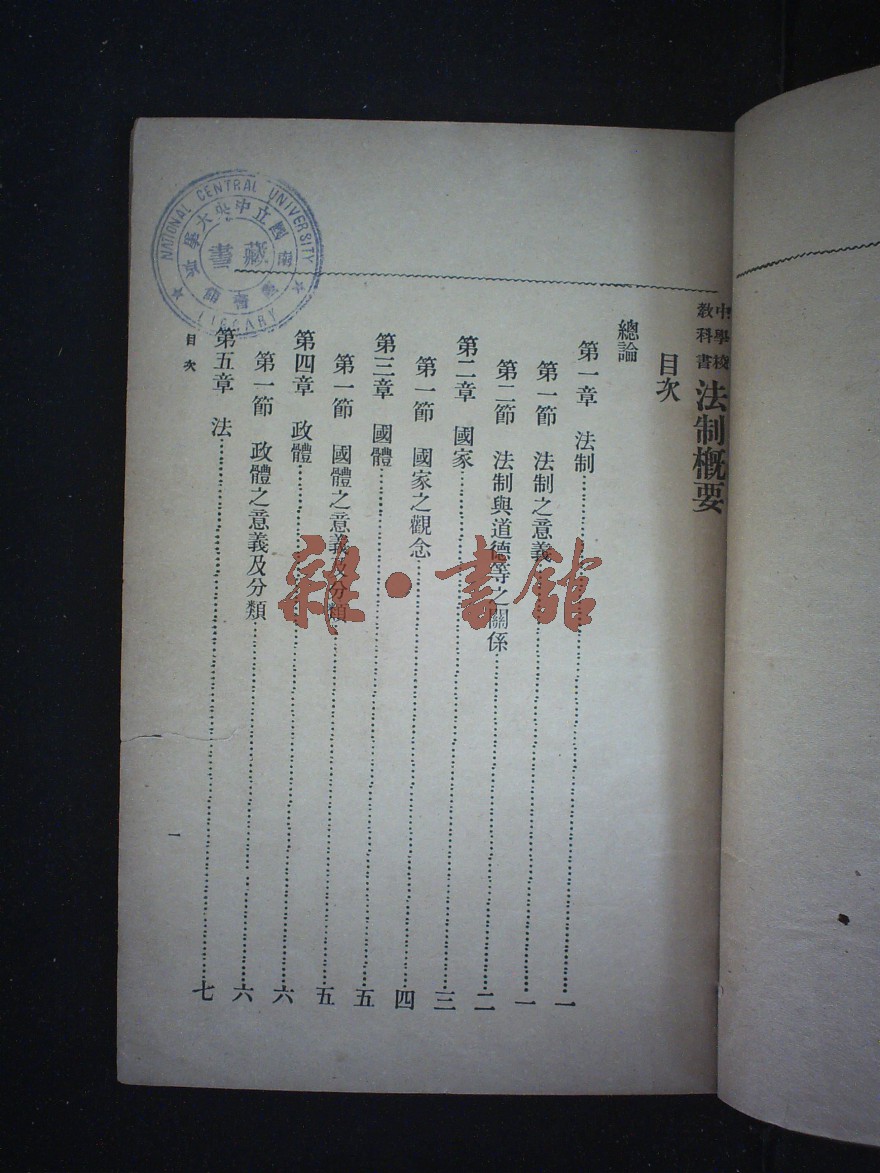 中學校
教科書
法制概要
目次
總論
第一章 法制……一
第一節 法制之意義……一
第二節 法制與道德等之關係……二
第二章 國家……三
第一節 國家之觀念……四
第三章 國體……五
第一節 國體之意義及分類……五
第四章 政體……六
第一節 政體之意義及分類……六
第五章 法……七
目次
一
NATIONAL CENTRAL UNIVERSITY
LIBRARY
國立中央大學
藏書
雜·書館